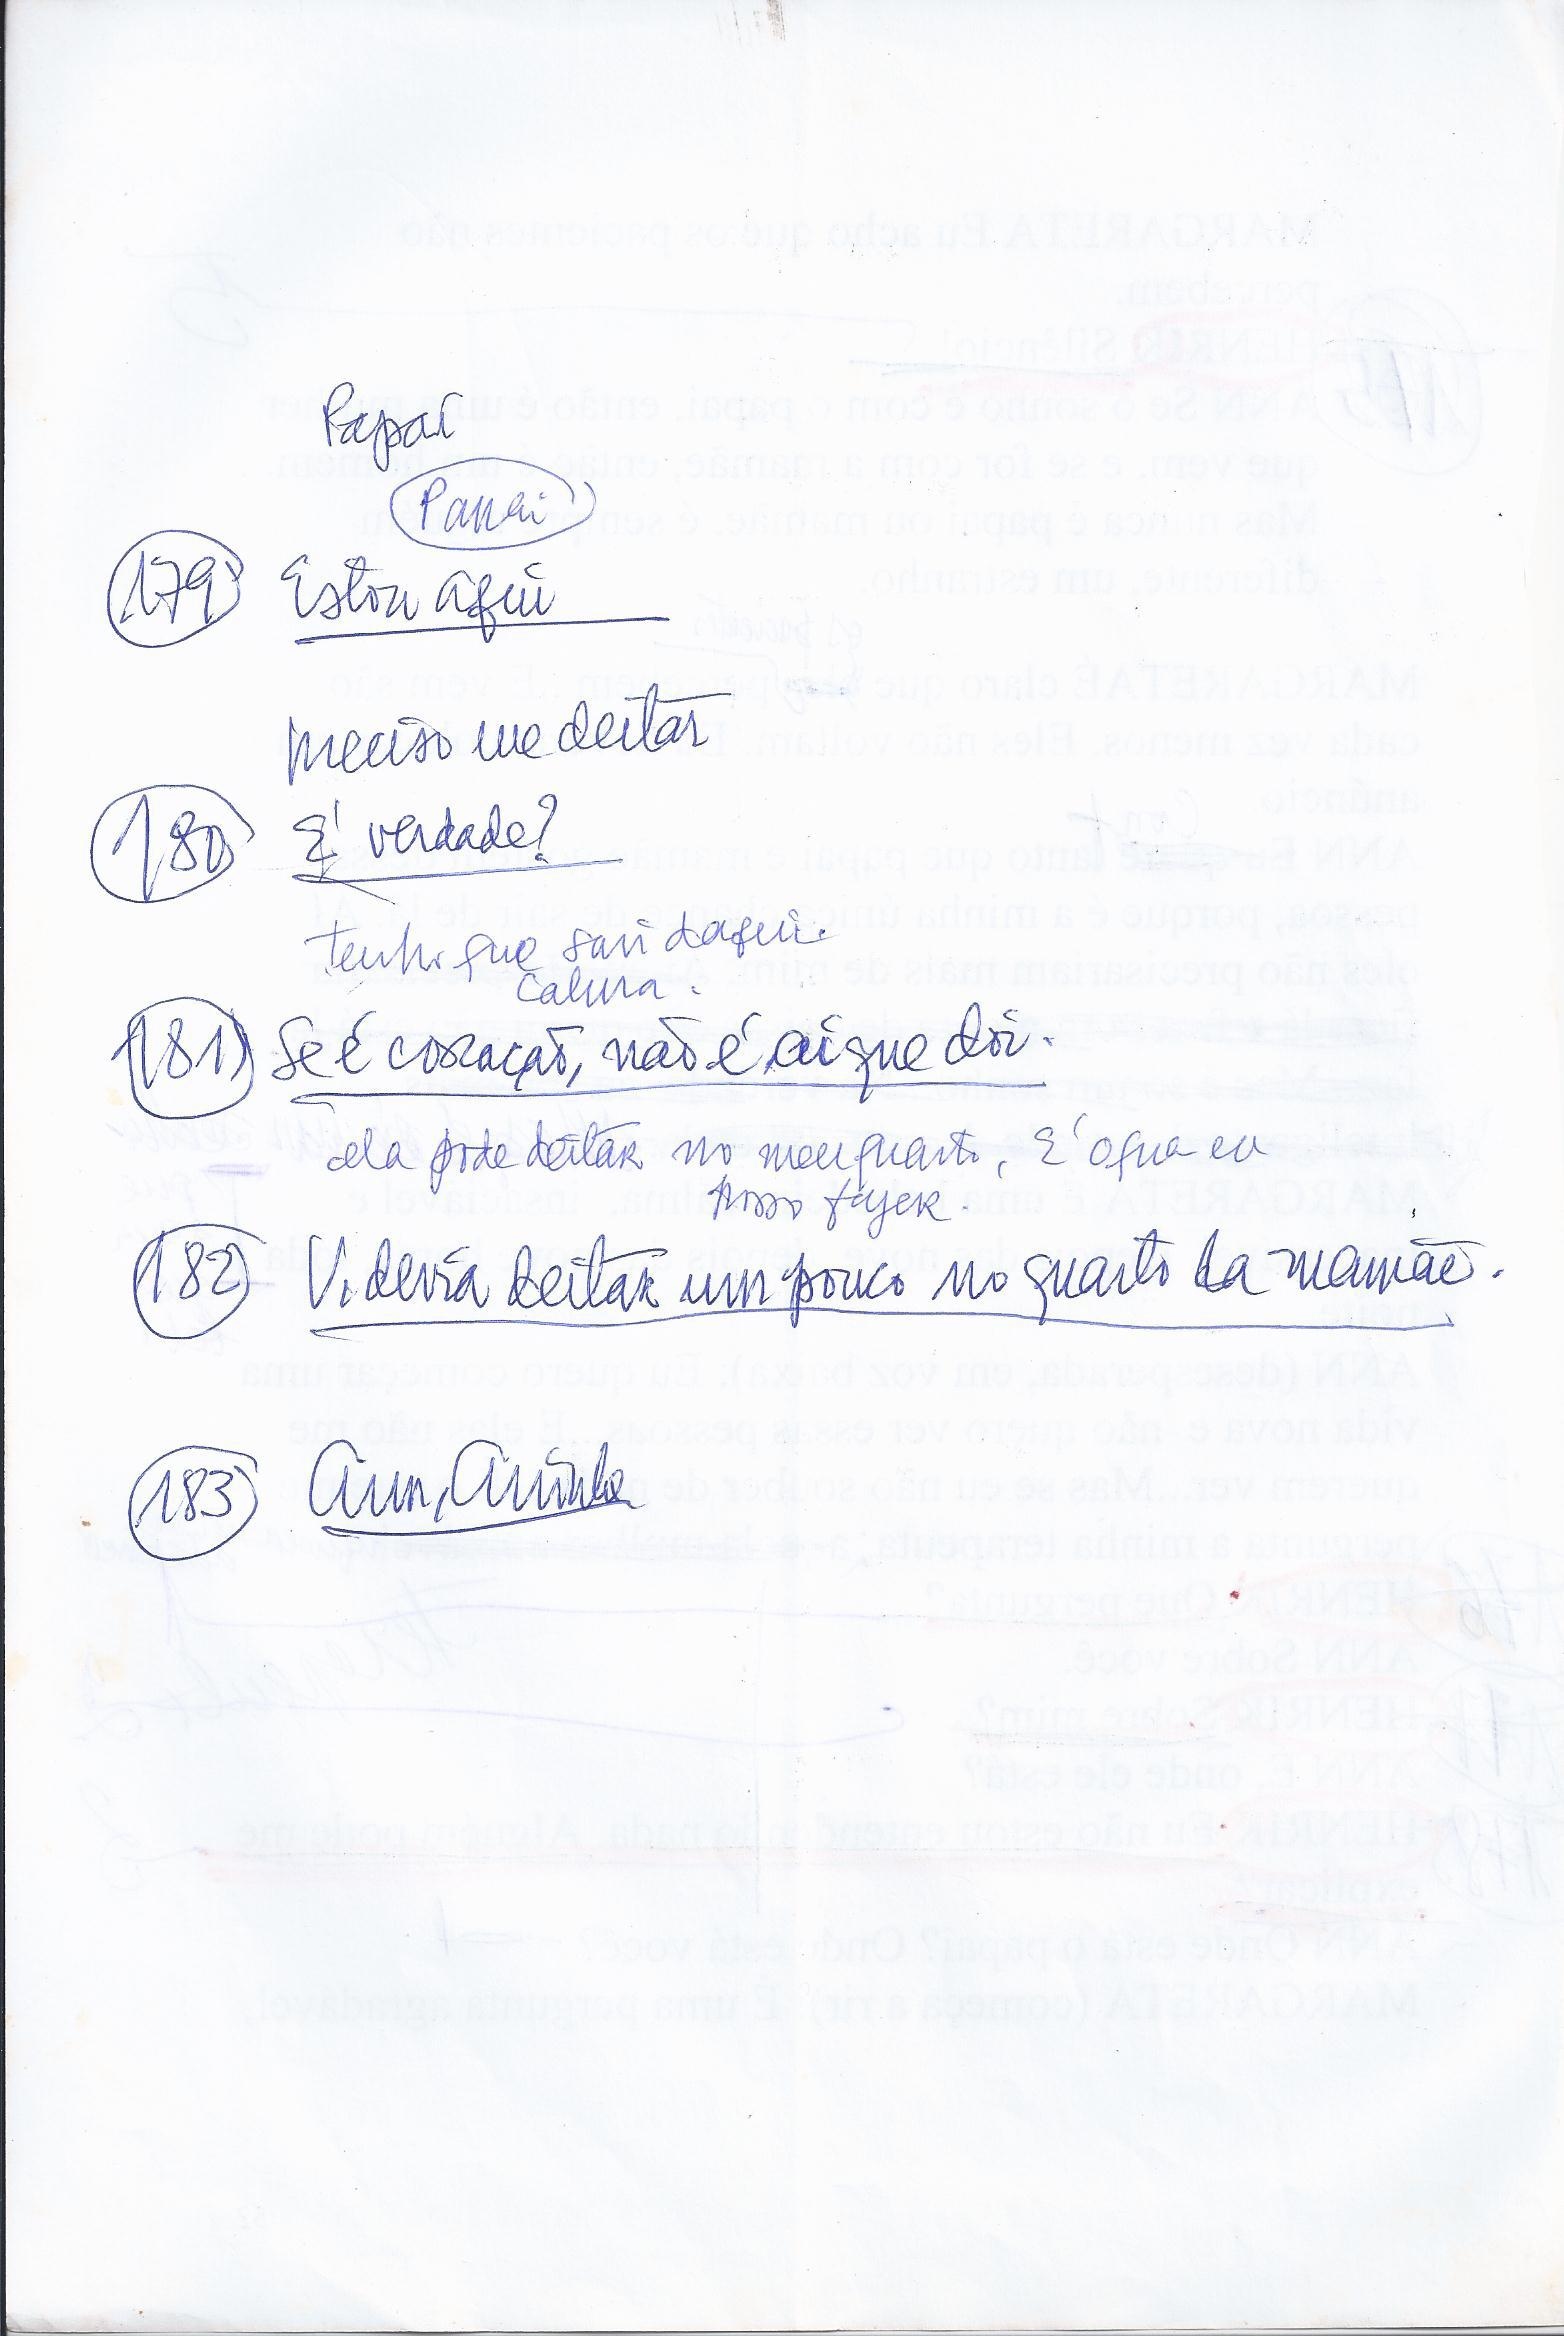 Papai
Papai
179 Estou aqui
preciso me deitar
180 É verdade?
tenho que sair daqui.
calma.
181 Se é coração, não é aí que doi.
ela pode deitar no meu quarto, É o que eu
posso fazer.
182 V. devia deitar um pouco no quarto da mamãe.
183 Ann, Aninha